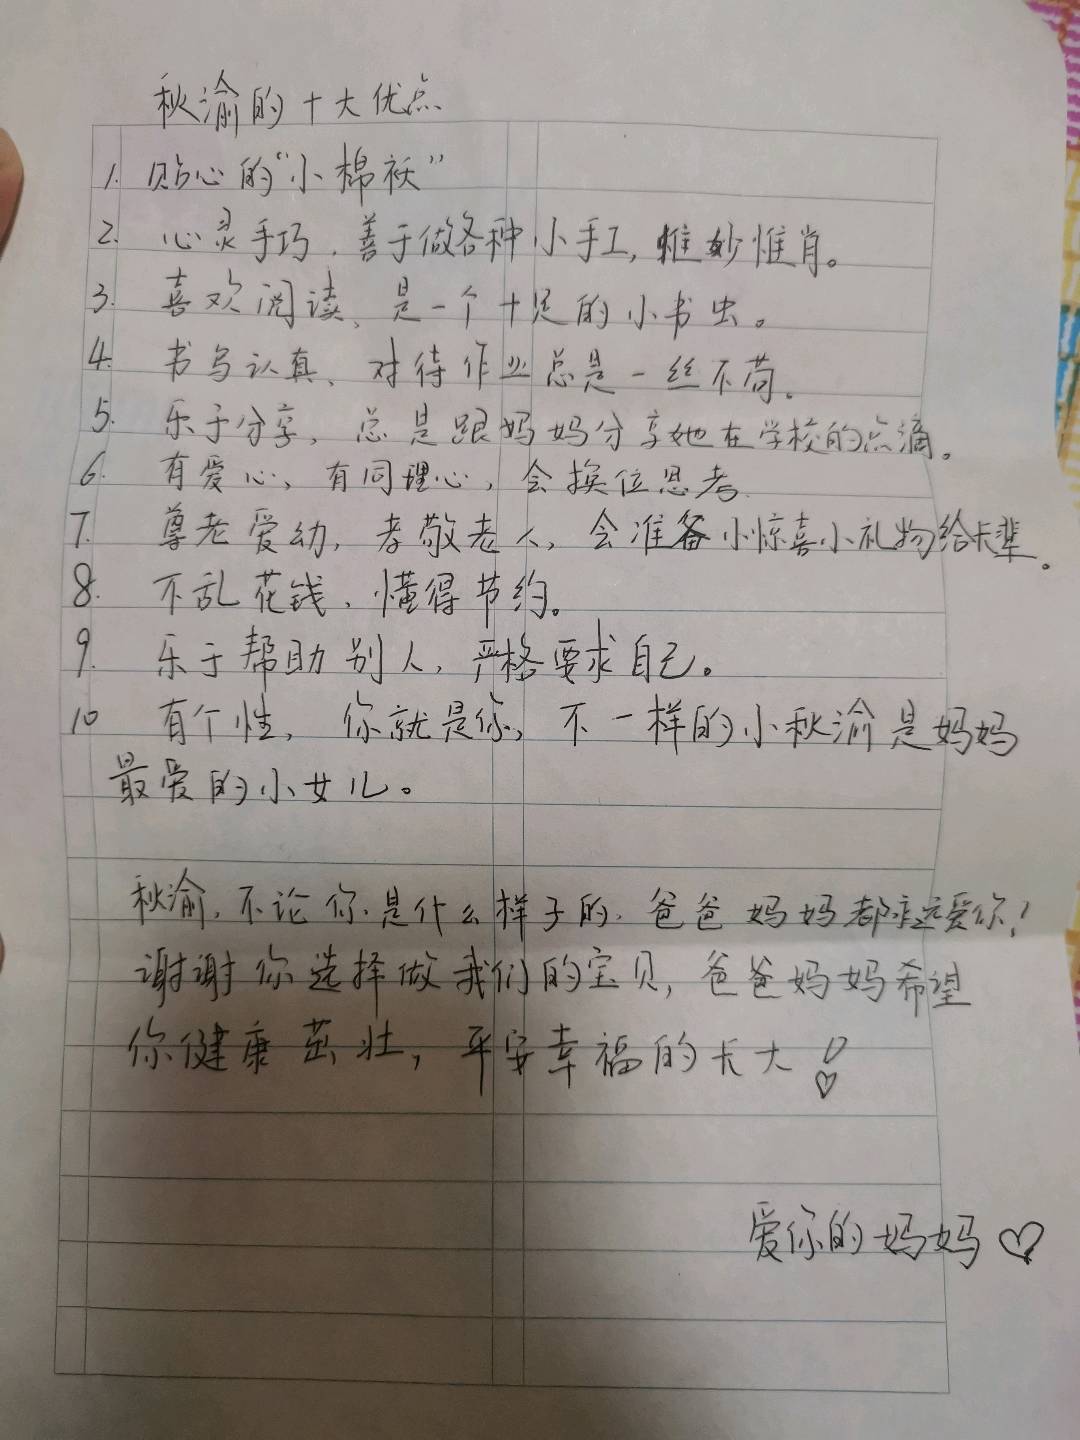 秋渝的十大优点
1. 贴心的“小棉袄”
2. 心灵手巧，善于做各种小手工，惟妙惟肖。
3. 喜欢阅读，是一个十足的小书虫。
4. 书写认真，对待作业总是一丝不苟。
5. 乐于分享，总是跟妈妈分享她在学校的点滴。
6. 有爱心，有同理心，会换位思考.
7. 尊老爱幼，孝敬老人，会准备小惊喜小礼物给长辈。
8. 不乱花钱，懂得节约。
9. 乐于帮助别人，严格要求自己。
10 有个性，你就是你，不一样的小秋渝是妈妈
最爱的小女儿。
秋渝，不论你是什么样子的，爸爸妈妈都永远爱你！
谢谢你选择做我们的宝贝，爸爸妈妈希望
你健康茁壮，平安幸福的长大！
爱你的妈妈♡